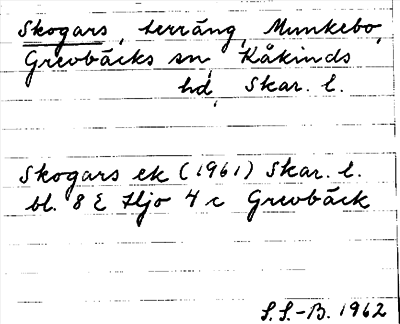 Skogars, terräng, Munkebo,
Grevbäcks sn, Kåkinds
hd, Skar. l.
Skogars ek (1961) Skar. l.
bl. 8 E Hjo 4 c Grevbäck
S.S.-B. 1962